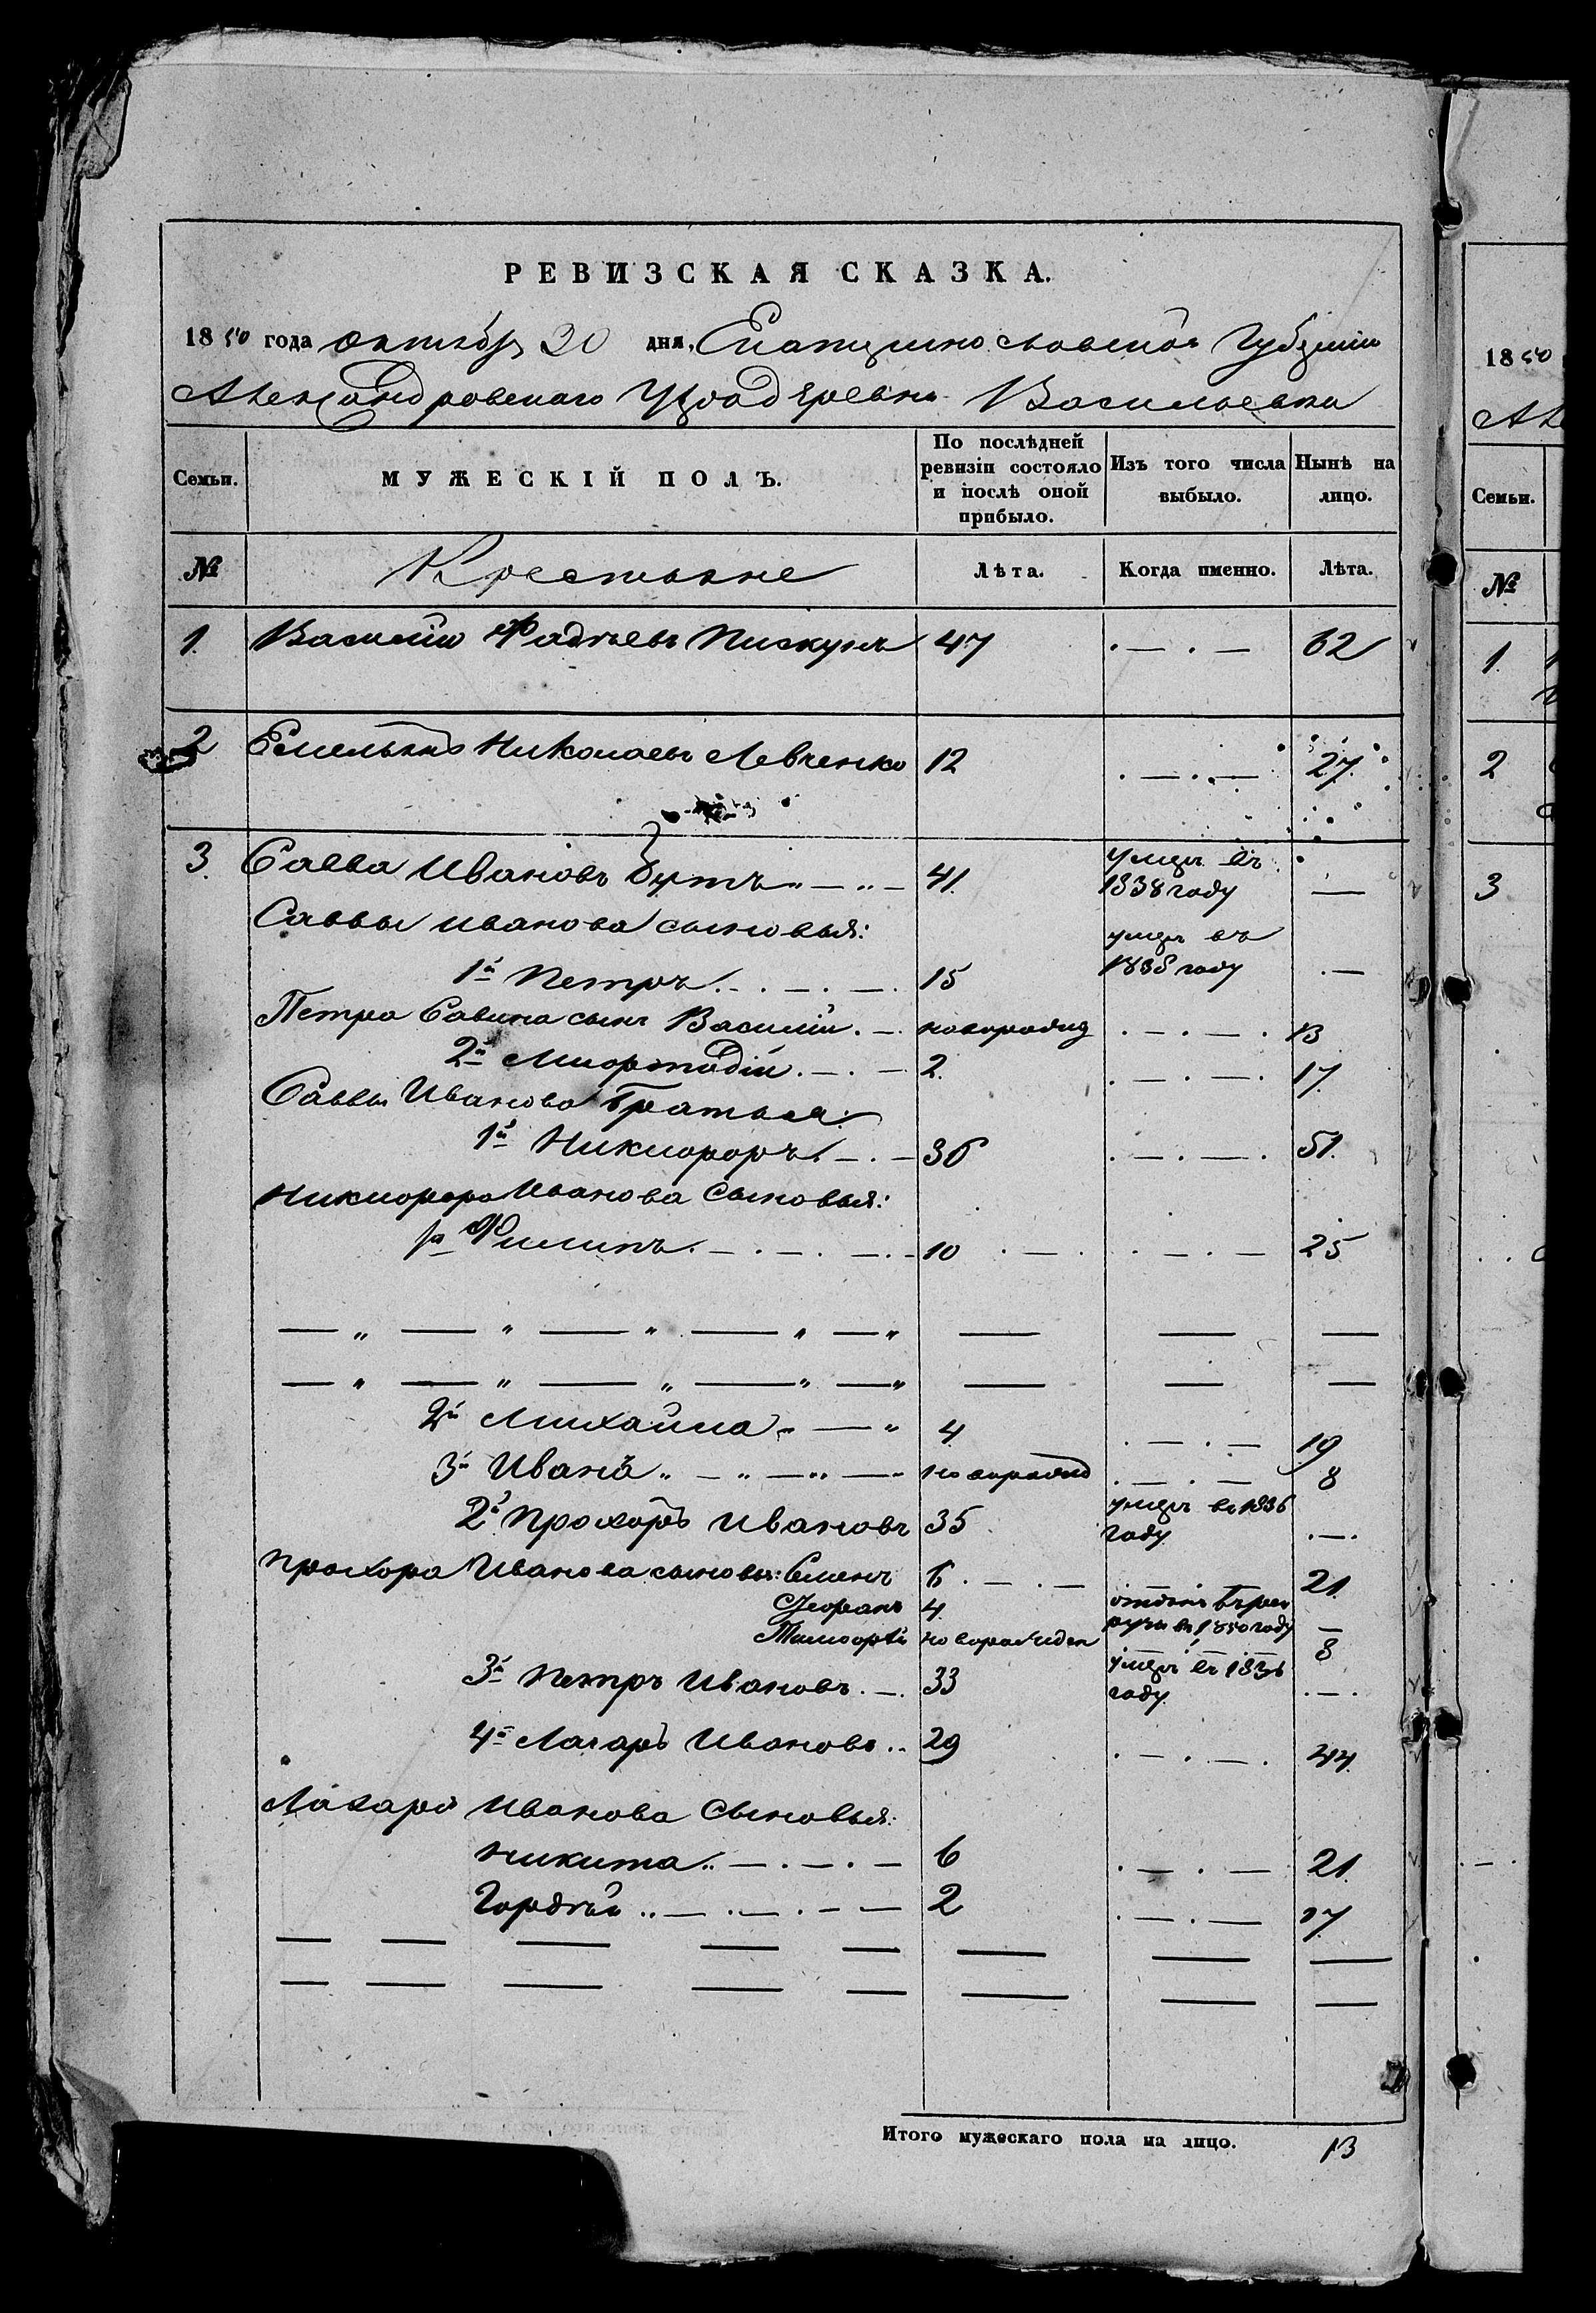 РЕВИЗСКАЯ СКАЗКА.
1850 года октября 20 дня, Екатеринославской Губернии
Александровского Уезда деревни Васильевки
Семьи. МУЖЕСКІЙ ПОЛЪ. По послѣдней ревизіи состояло и послѣ оной прибыло. Изъ того числа выбыло. Нынѣ на лицо.
№ Крестьяне Лѣта. Когда именно. Лѣта.
1. Василій Фадѣевъ Пискунъ 47 62
2 Емельянъ Николаевъ Левченко 12 27
3. Савва Ивановъ Бутъ 41. умеръ въ 1838 году
Саввы Иванова сыновья:
1й Петръ 15 умеръ въ 1838 году
Петра Савина сынъ Василій новорожд 13
2й Мифодій 2. 17.
Саввы Иванова братья:
1й Никифоръ 36 51.
Никифора Иванова Сыновья:
1й Филипъ 10 25
2й Михайла 4 19
3й Иванъ новорожд 8
2й Прохоръ Ивановъ 35 умеръ въ 1836 году
Прохора Иванова сыновья: Семенъ 6 21.
4. отданъ в рекруты въ 1850 году
Тимофей новорожден 8
3й Петръ Ивановъ 33 умеръ въ 1836 году
4й Лазарь Ивановъ 29 44.
Лазаря Иванова Сыновья:
Никита 6 21.
Гордѣй 2 17
Итого мужескаго пола на лицо. 13
1850
Семьи.
№
1.
2
3